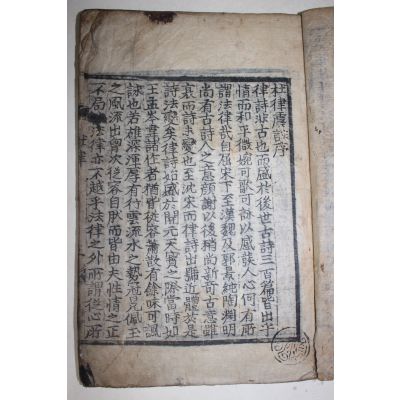 杜律虞註序
律詩非古也而盛於後世古詩三百篇皆出乎
情而和平微婉可歌可詠以感發人心何有所
謂法律哉自屈宋下至漢魏及郭景純陶淵明
尚有古詩人之意顏謝以後稍尚新奇古意雖
衰而詩未變也至沈宋而律詩出號近體於是
詩法變矣律詩始盛於開元天寶之際當時如
王孟岑韋諸作者猶皆從容蕭散有餘味可諷
詠也若雄深渾厚有行雲流水之勢冠冕佩玉
之風流出胷次從容自然而皆由夫性情之正
不局於法律亦不越乎法律之外所謂從心所